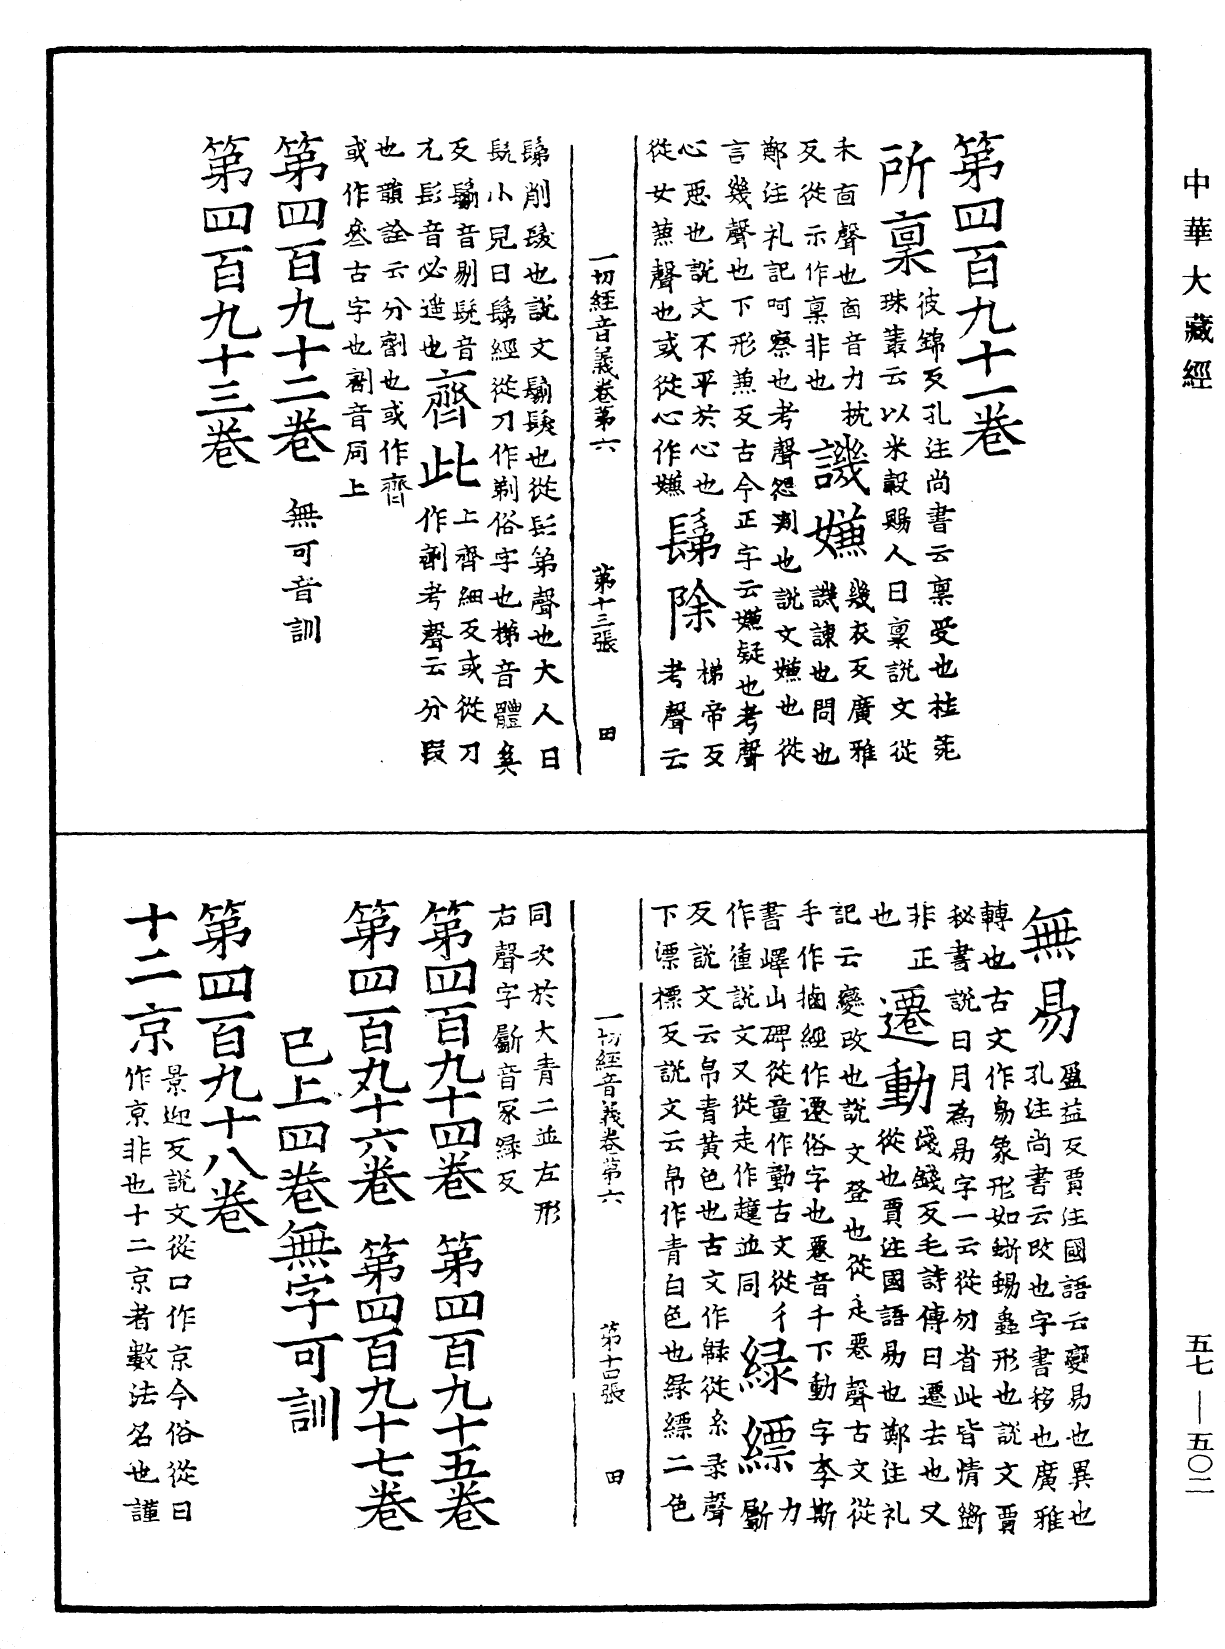 中華大藏經
第四百九十一卷
所稟
彼錦反孔注尚書云稟受也桂苑
珠叢云以米穀賜人曰稟說文從
禾㐭聲也㐭音力枕
反從示作禀非也
譏嫌
幾衣反廣雅
譏諫也問也
鄭注礼記呵察也考聲怨刺也說文嫌也從
言幾聲也下形兼反古今正字云嫌疑也考聲
心惡也說文不平於心也
從女兼聲也或從心作慊
鬀除
梯帝反
考聲云
鬀削髮也說文鬄髮也從髟弟聲也大人曰
髡小兒曰鬀經從刀作剃俗字也梯音體奚
反鬄音剔髡音
兀髟音必遥也
齊此
上齊細反或從刀
作劑考聲云分段
也韻詮云分劑也或作齊
或作叅古字也劑音局上
第四百九十二卷 無可音訓
第四百九十三卷
一切經音義卷第六 第十三張 田
無易
盈益反賈注國語云變易也異也
孔注尚書云改也字書移也廣雅
轉也古文作易象形如蜥蜴蟲形也說文賈
秘書說日月為易字一云從勿省此皆情斷
非正
也
遷動
淺錢反毛詩傳曰遷去也又
從也賈注國語易也鄭注礼
記云變改也說文登也從辵䙴聲古文從
手作拪經作遷俗字也䙴音千下動字李斯
書嶧山碑從童作動古文從彳
作㣫說文又從走作䟲並同
緑縹
力
斸
反說文云帛青黃色也古文作緑從糸录聲
下漂標反說文云帛作青白色也緑縹二色
同次於大青二並左形
右聲字斸音冢緑反
第四百九十四卷 第四百九十五卷
第四百九十六卷 第四百九十七卷
已上四卷無字可訓
第四百九十八卷
十二京
景迎反說文從口作京今俗從日
作亰非也十二京者數法名也謹
一切經音義卷第六 第十四張 田
五七—五〇二